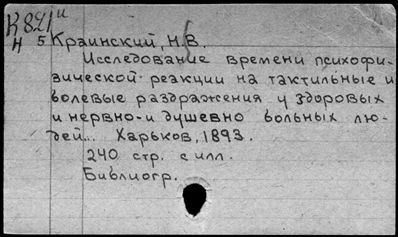 К821 и
Н 5 Краинский, Н.В.
Исследование времени психофи-
зической реакции на тактильные и
болевые раздражения у здоровых
и нервно- и душевно больных лю-
дей... Харьков, 1893.
240 стр. с илл.
Библиогр.